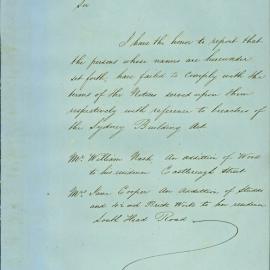 Sir
I have the honor to report that
the persons whose names are hereunder
set forth, have failed to comply with the
terms of the Notices served upon them
respectively with reference to breaches
of the Sydney Building Act
Mr. William Nash, An addition of Wood
to his residence Castlereagh Street
Mr. Isaac Cooper An Addition of Studs
and 4½ Brick Work to his residence
South Head Road